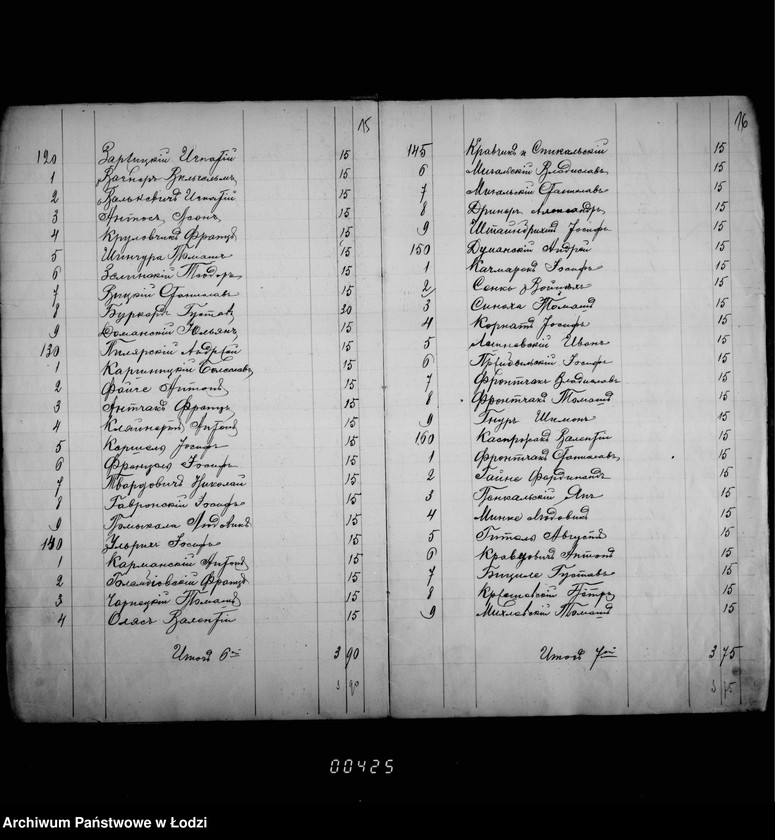 15
120 Зарвицкій Игнатій 15
1 Вагнеръ Вильгельмъ 15
2 Валькевичъ Игнатій 15
3 Антосъ Леонъ 15
4 Круловикъ Францъ 15
5 Шингура Томашъ 15
6 Зелинскій Теодоръ 15
7 Выцкій Станиславъ 15
8 Буркардъ Густавъ 30
9 Доманскій Юльянъ 15
130 Пилярскій Андрей 15
1 Карпинцкій Болеславъ 15
2 Файге Антонъ 15
3 Антчакъ Францъ 15
4 Кляйнертъ Антонъ 15
5 Кершель Іосифъ 15
6 Френцель Іосифъ 15
7 Твардовичъ Николай 15
8 Гавронскій Іосифъ 15
9 Помыкала Людвикъ 15
140 Ульрихъ Іосифъ 15
1 Карманскій Антонъ 15
2 Францъ 15
3 Чарнецкій Томашъ 15
4 Олясъ Валентій 15
Итого 6ой 3 90
3 90
16
145 Кравчикъ и Спикальскій 15
6 Мигальскій Владиславъ 15
7 Мигальскій Станиславъ 15
8 Александръ 15
9 Штайндрихъ Іосифъ 15
150 Думанскій Андрей 15
1 Качмарекъ Іосифъ 15
2 Сенкъ Войцехъ 15
3 Синоха Томашъ 15
4 Корнатъ Іосифъ 15
5 Липповскій Иванъ 15
6 Пржибыльскій Іосифъ 15
7 Фронтчакъ Владиславъ 15
8 Фронтчакъ Томашъ 15
9 Гнуръ Шимонъ 15
160 Каспржакъ Валентій 15
1 Фронтчакъ Станиславъ 15
2 Гайне Фердинандъ 15
3 Пенкальскій Янъ 15
4 Минке Людовикъ 15
5 Гительъ Августъ 15
6 Антонъ 15
7 Густавъ 15
8 Петръ 15
9 Михловскій Томашъ 15
Итого 7ой 3 75
3 75
00425
Archiwum Państwowe w Łodzi